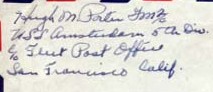 Hugh M Porter FM2/c
USS Amsterdam 5th Div.
c/o Fleet Post Office
San Francisco Calif.